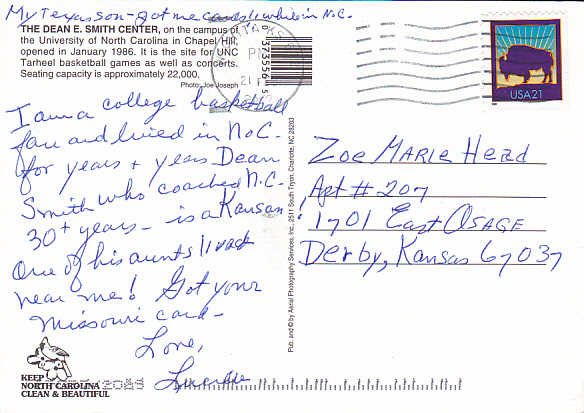 My Texas son - got me cards while in N.C.
THE DEAN E. SMITH CENTER, on the campus of
the University of North Carolina in Chapel Hill,
opened in January 1986. It is the site for UNC
Tarheel basketball games as well as concerts.
Seating capacity is approximately 22,000.
Photo: Joe Joseph
I am a college basketball
fan and lived in No C.
for years + years Dean
Smith who coached N.C.
30+ years - is a Kansas
One of his aunts lived
near me! Got your
Missouri card -
Love,
Lucille
KEEP
NORTH CAROLINA
CLEAN & BEAUTIFUL
Pub. and © by Aerial Photography Services, Inc., 2511 South Tryon, Charlotte, NC 28203
PM
USA21
Zoe MARIE Head
Apt # 207
1701 East OSAGE
Derby, Kansas 67037